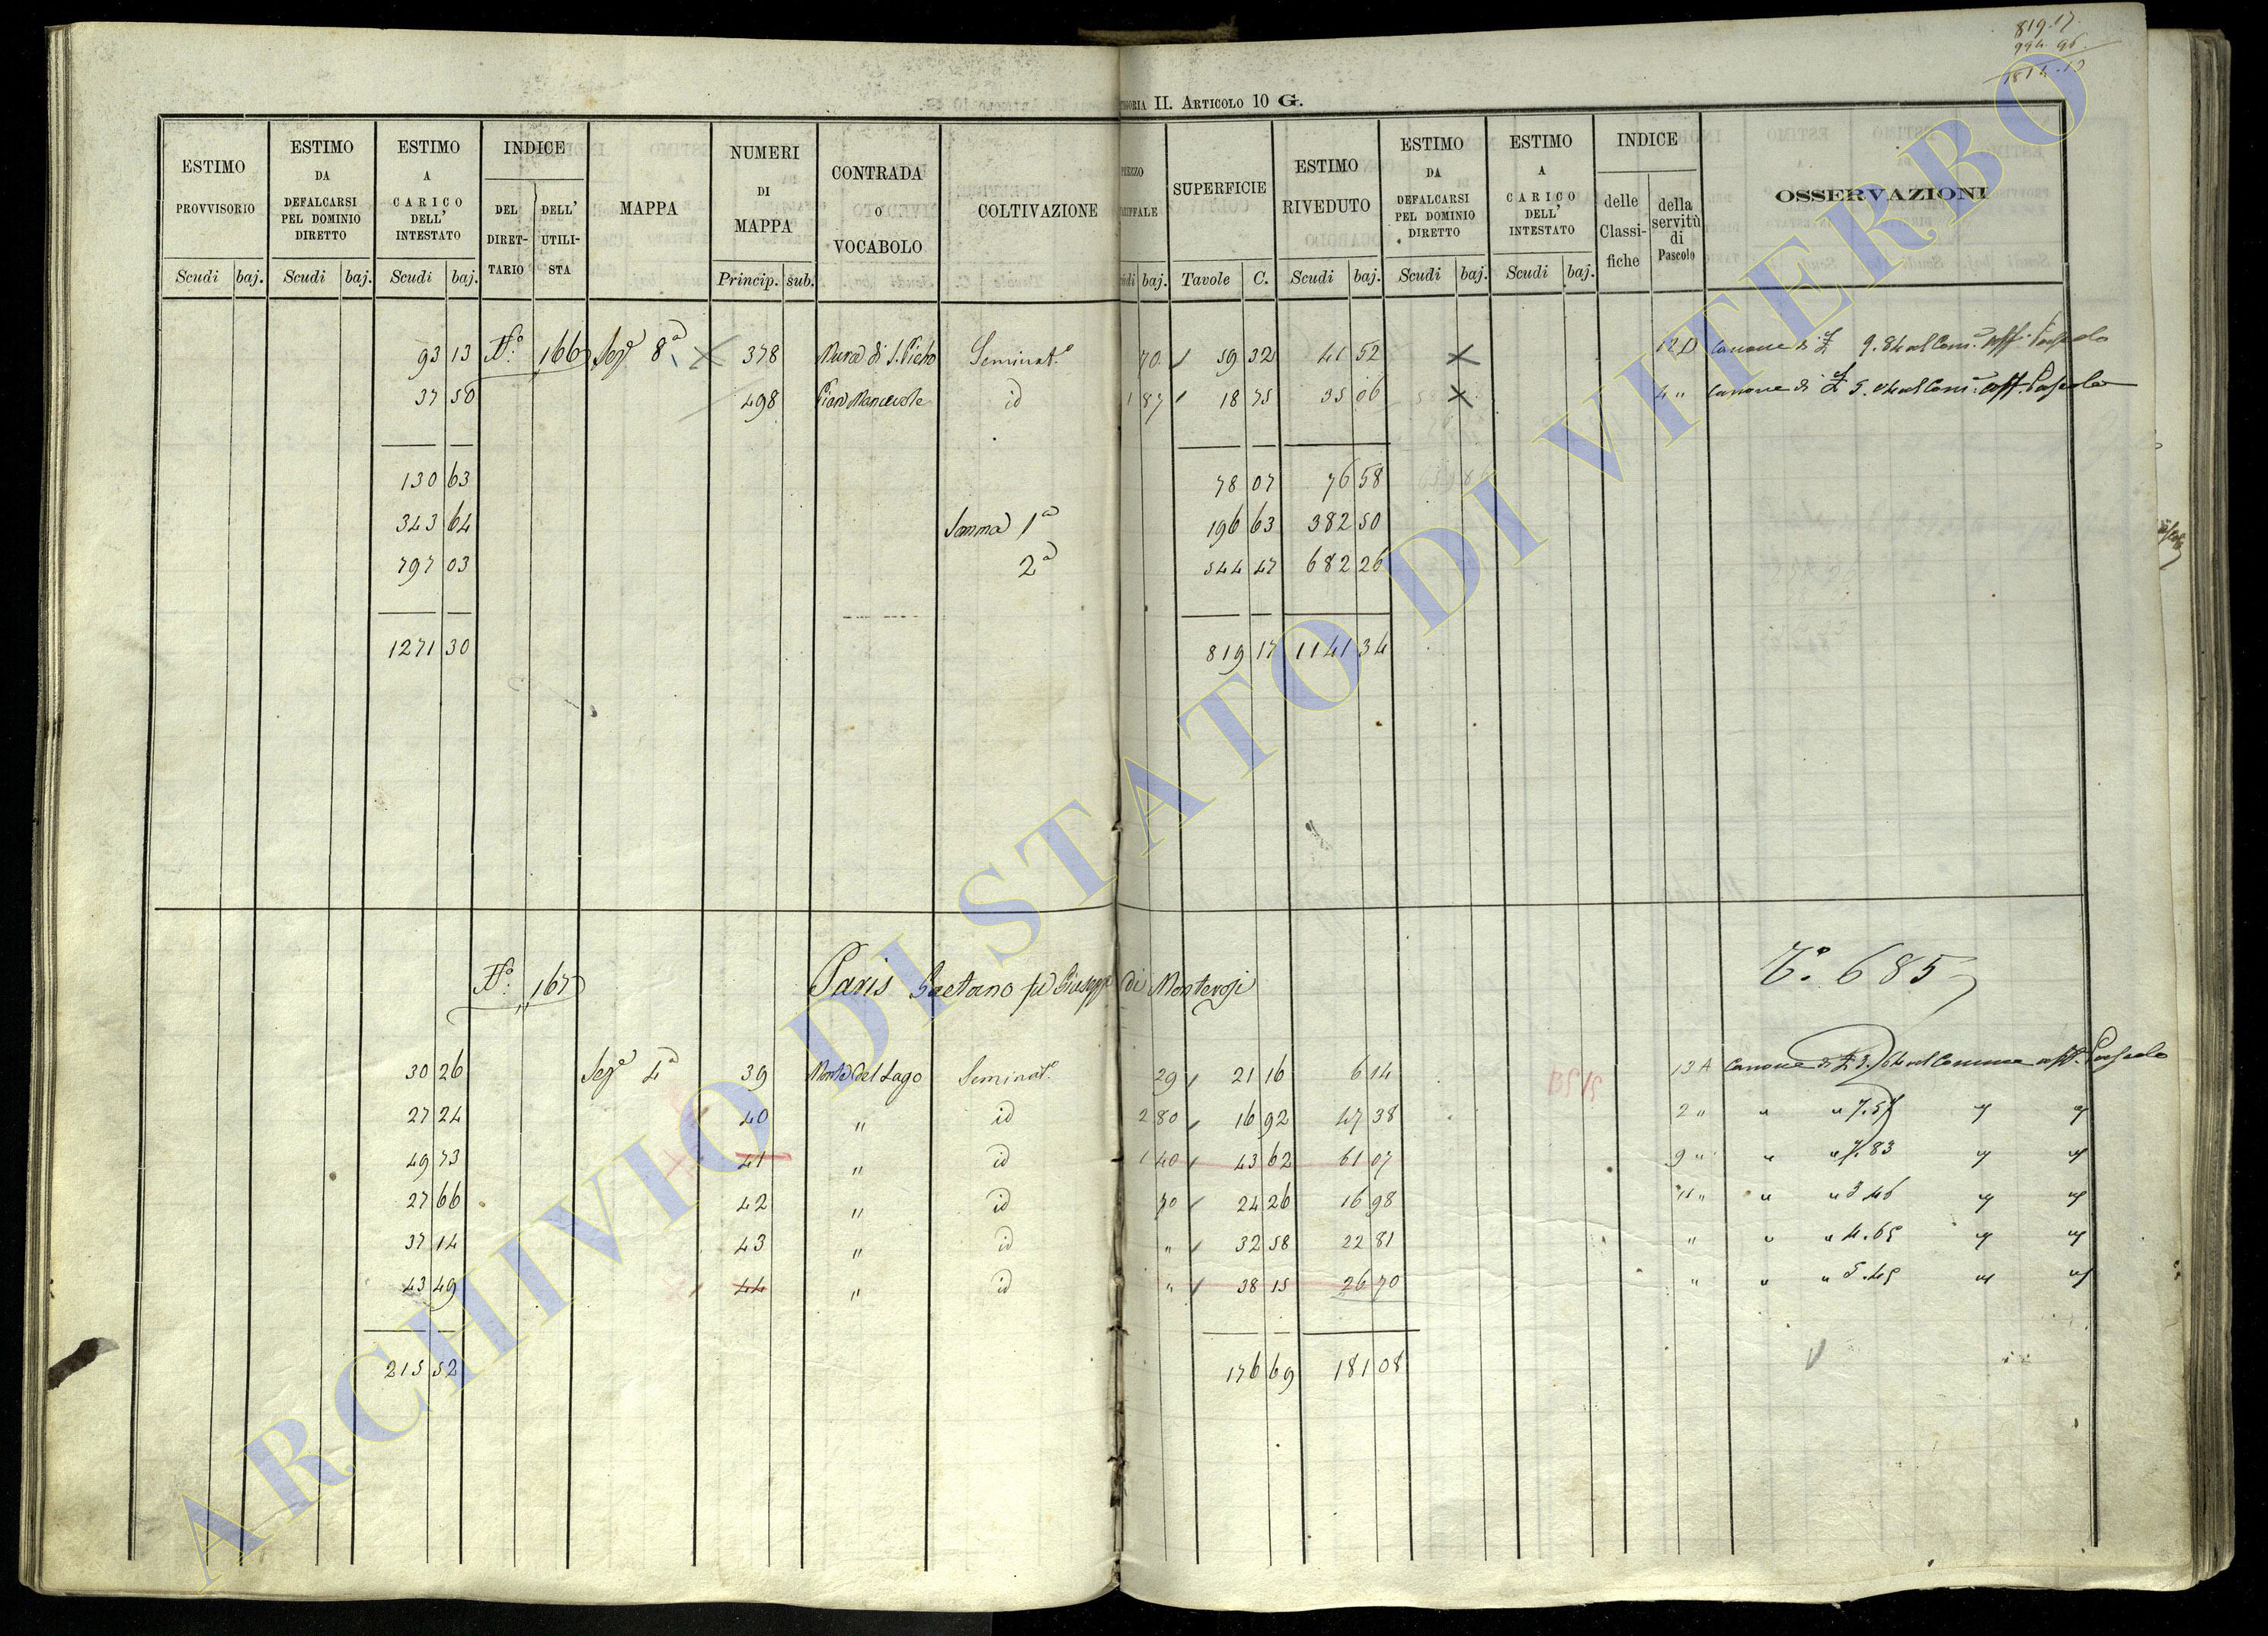 819.17.
994.96.
1814.13
EGORIA II. ARTICOLO 10 G.
ESTIMO PROVVISORIO Scudi baj.
ESTIMO DA DEFALCARSI PEL DOMINIO DIRETTO Scudi baj.
ESTIMO A CARICO DELL' INTESTATO Scudi baj.
INDICE DEL DIRET-TARIO DELL' UTILI-STA
MAPPA
NUMERI DI MAPPA Princip. sub.
CONTRADA O VOCABOLO
COLTIVAZIONE
PREZZO TARIFFALE Scudi baj.
SUPERFICIE Tavole C.
ESTIMO RIVEDUTO Scudi baj.
ESTIMO DA DEFALCARSI PEL DOMINIO DIRETTO Scudi baj.
ESTIMO A CARICO DELL' INTESTATO Scudi baj.
INDICE delle Classi-fiche della servitù di Pascolo
OSSERVAZIONI
93 13 N.° 166 Sez.e 8a 378 Mura di S. Pietro Seminat.o 70 59 32 41 52 12 D Canone di 9.84 al Com.e aff. Pascolo
37 50 498 Piano id 1 87 18 75 35 06 4 " Canone di 5. al Com.e aff. Pascolo
130 63 78 07 76 58
343 64 Somma 1a 196 63 382 50
797 03 2a 544 47 682 26
1271 30 819 17 1141 34
N.° 167 Paris Gaetano fu Giuseppe di Monterosi T.° 685
30 26 Sez.e 4a 39 Monte del Lago Seminat.o 29 21 16 6 14 13 A Canone di al Comune aff. Pascolo
27 24 40 " id 2 80 16 92 47 38 2 " " " 7.57 " "
49 73 41 " id 1 40 43 62 61 07 9 " " " 7.83 " "
27 66 42 " id 70 24 26 16 98 11 " " " 3.46 " "
37 14 43 " id " 32 58 22 81 " " " 4.65 " "
43 49 44 " id " 38 15 26 70 " " " 5.45 " "
215 52 176 69 181 08
ARCHIVIO DI STATO DI VITERBO